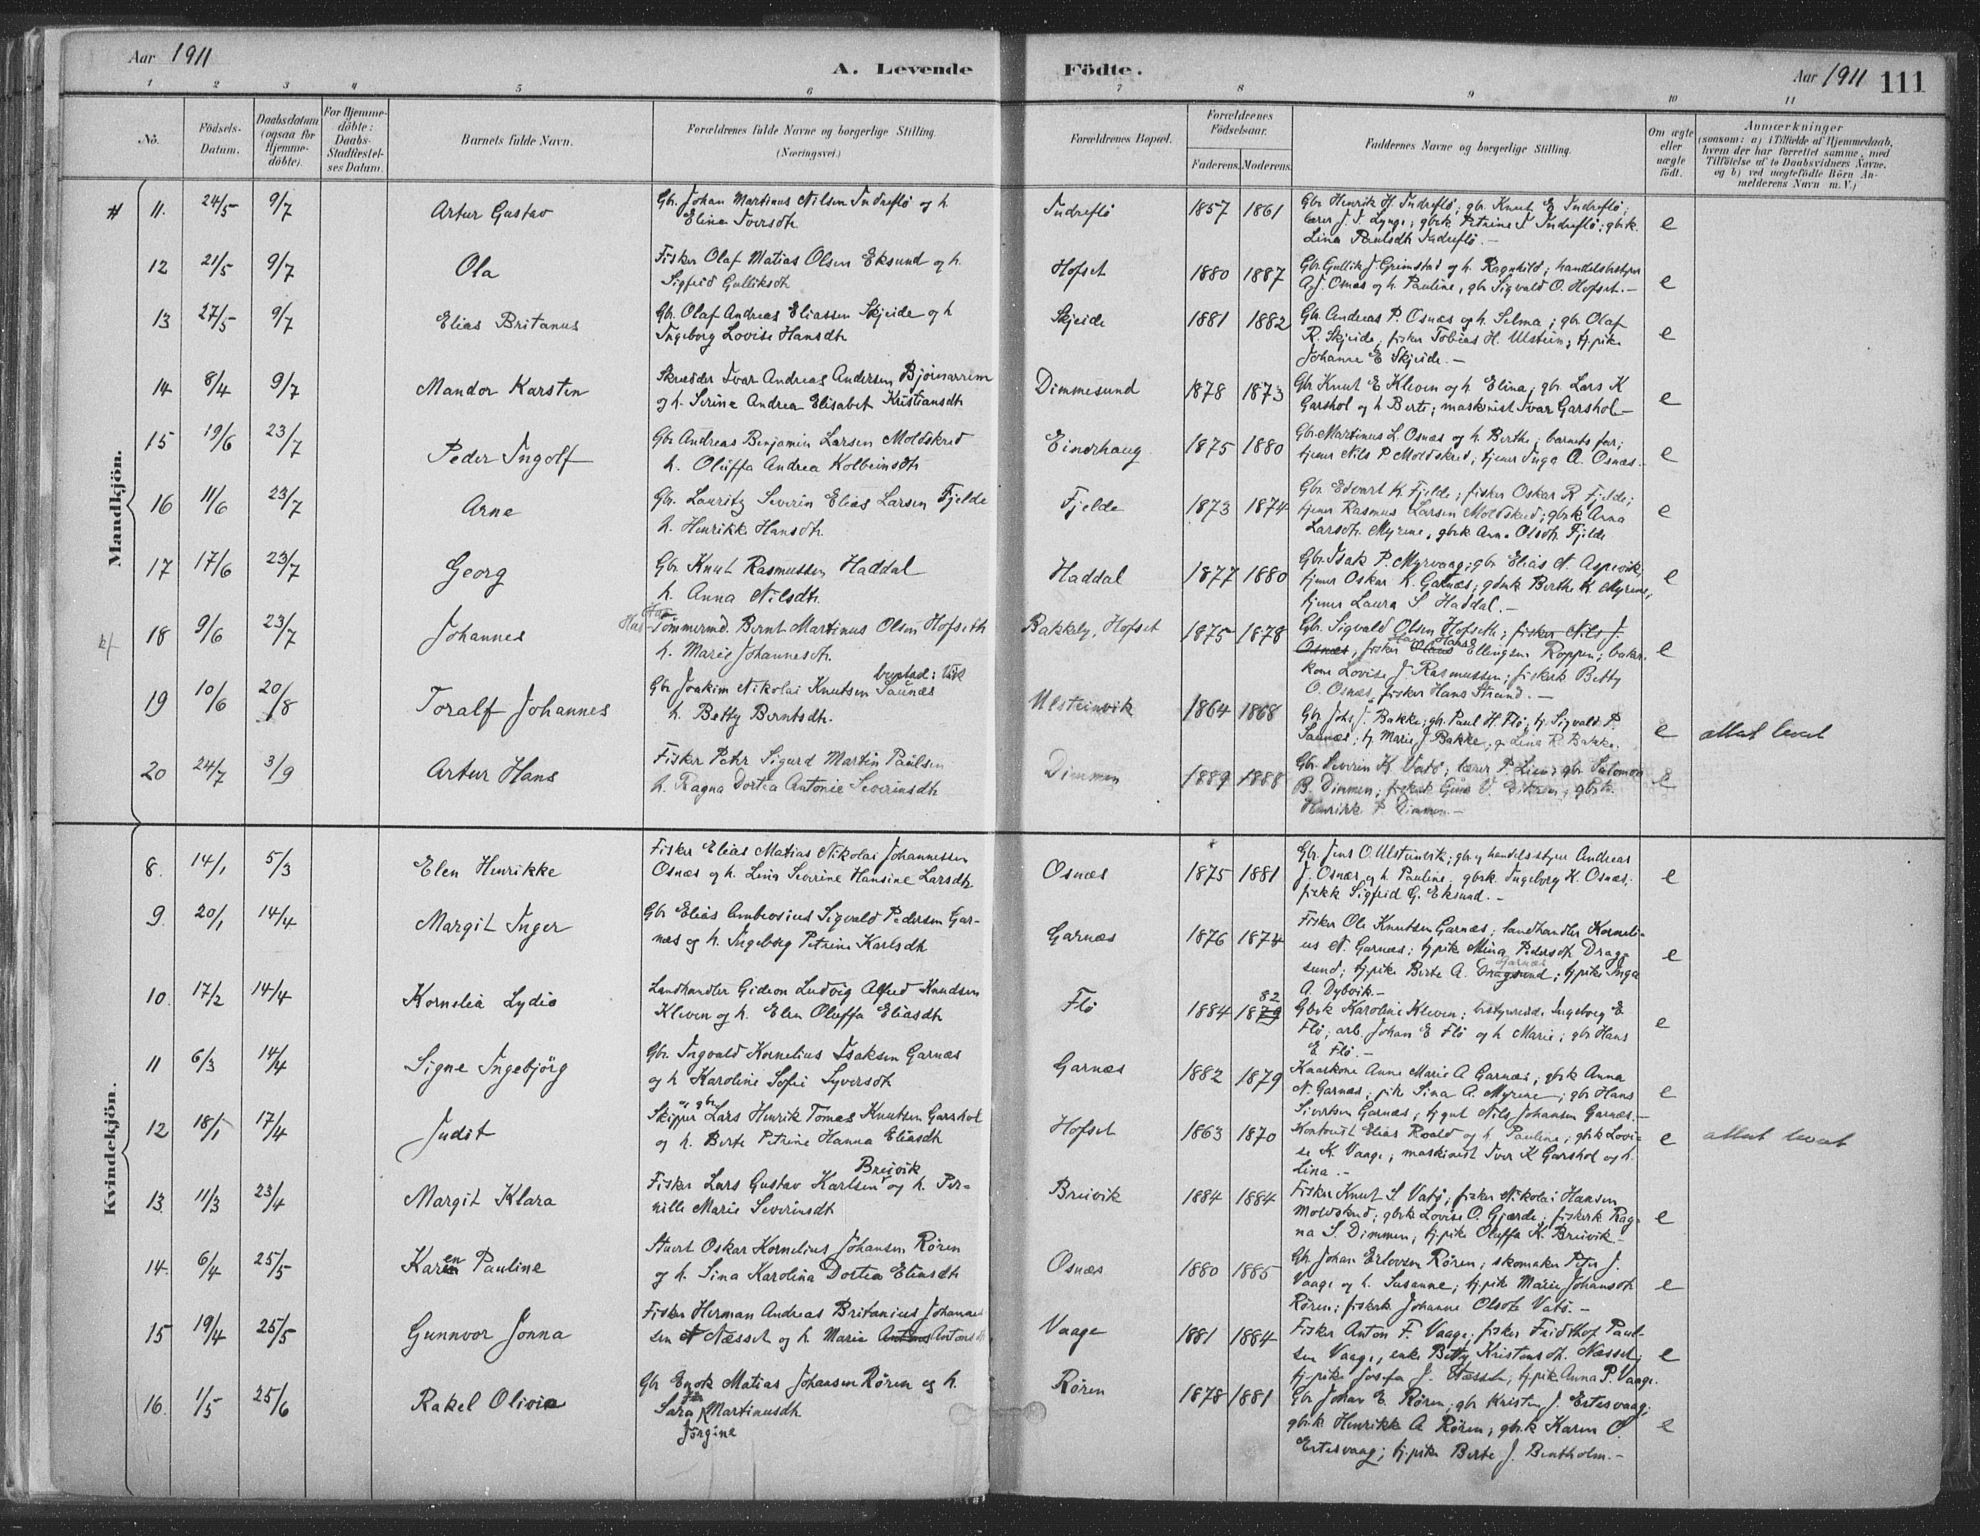 Aar 1911
A. Levende Födte.
Aar 1911 111
1 2 3 4 5 6 7 8 9 10 11
No.
Födsels-Datum.
Daabsdatum (ogsaa for Hjemmedöbte).
For Hjemmedöbte: Daabs-Stadfæstelses Datum.
Barnets fulde Navn.
Forældrenes fulde Navne og borgerlige Stilling. (Næringsvei.)
Forældrenes Bopæl.
Forældrenes Födselsaar.
Faderens. Moderens.
Faddernes Navne og borgerlige Stilling.
Om ægte eller uægte födt.
Anmærkninger
(saasom: a) i Tilfælde af Hjemmedaab, hvem der har forrettet samme, med Tilföielse af to Daabsvidners Navne, og b) ved uægtefödte Börn Anmelderens Navn m. V.)
Mandkjön.
11. 24/5 9/7 Artur Gustav
Gbr. Johan Martinus Nilsen Indreflö og h.
Elina Iversdtr.
Indreflö 1857 1861
Gbr Henrik H. Indreflö; gbr. Knut E Indreflö;
lærer J. I. Lynge; gbrk Petrine I Indreflö; gbrk.
Lina Paulsdtr Indreflö.- e
12 21/5 9/7 Ola
Fisker Olaf Matias Olsen Eksund og h.
Sigfrid Gulliksdtr
Hofset 1880 1887
Gbr. Gullik J. Grimstad og h. Ragnhild; handelsbestyrer
A. J. Osnæs og h. Pauline, gbr Sigvald O. Hofset.- e
13 27/5 9/7 Elias Britanus
Gbr. Olaf Andreas Eliassen Skjeide og h
Ingeborg Lovise Hansdtr
Skjeide 1881 1882
Gbr. Andreas P. Osnæs og h. Selma; gbr Olaf
R. Skjeide; fisker Tobias H. Ulstein; tj.pike
Johanne E Skjeide.- e
14 8/4 9/7 Mandor Karsten
Skrædder Ivar Andreas Andersen Bjørnarrem
og h. Serine Andrea Elisabet Kristiansdtr
Dimmesund 1878 1873
Gbr Knut E Kleven og h Elina; gbr. Lars K
Garshol og h Berte; maskinist Ivar Garshol- e
15 19/6 23/7 Peder Ingolf
Gbr Andreas Benjamin Larsen Moldskred
h. Oluffa Andrea Kolbeinsdtr
Eindrhaug 1875 1880
Gbr. Martinus L. Osnæs og h. Berthe; barnets far;
tjener Nils P Moldskred; tjener Inga A. Osnæs. e
16 11/6 23/7 Arne
Gbr. Lauritz Severin Elias Larsen Fjelde
h. Henrikke Hansdtr.
Fjelde 1873 1874
Gbr. Edvart K. Fjelde; fisker Oskar R Fjelde;
tjener Rasmus Larsen Moldskred; gbrk Anna
Larsdtr Myrene, gbrk Anna Olsdtr Fjelde e
17 17/6 23/7 Georg
Gbr Knut Rasmussen Haddal
h. Anna Nilsdtr.
Haddal 1877 1880
Gbr. Isak P. Myrvaag; gbr Elias N. Aspevik,
tjener Oskar K. Garnæs; gbrk Berthe K Myrene;
tjener Laura S Haddal.- e
18 9/6 23/7 Johannes
Tömmermd. Bernt Martinus Olsen Hofseth
h. Marie Johannesdtr.
Bakkely, Hofset 1875 1878
Gbr. Sigvald Olsen Hofseth; fisker Nils J.
Osnæs, fisker Olaus Hans Ellingsen Roppen; baker-
kone Lovise J Rasmussen; fiskerk Betty
O. Osnæs, fisker Hans Strand.- e
19 10/6 20/8 Toralf Johannes
bustad: Vik
Gbr Joakim Nikolai Knutsen Saunes
h. Betty Berntsdtr.
Ulsteinvik 1864 1868
Gbr. Johs J. Bakke; gbr. Paul H. Flö; tj. Sigvald P.
Saunæs; tj. Marie J Bakke; g. Lina R. Bakke. e attest levert
20 24/7 3/9 Artur Hans
Fisker Petr Sigurd Martin Paulsen
h. Ragna Dortea Antonie Severinsdtr
Dimmen 1889 1888
Gbr Severin K Vatö; lærer P. Lien; gbr Salomon
B. Dimmen; fiskerk Gina V. Eiksen; gbrk.
Henrikke P Dimmen- e
Kvindekjön.
8. 14/1 5/3 Elen Henrikke
Fisker Elias Matias Nikolai Johannessen
Osnæs og h. Lina Severine Hansine Larsdtr
Osnæs 1875 1881
Gbr. Jens O. Ulsteinvik; gbr og handelsstyrer Andreas
J. Osnæs og h Pauline. gbrk. Ingeborg K. Osnæs.
fiskk Sigfrid G. Eksund.- e
9 20/1 14/4 Margit Inger
Gbr Elias Ambrosius Sigvald Pedersen Gar-
næs og h. Ingeborg Petrine Karlsdtr
Garnæs 1876 1874
Fisker Ole Knutsen Garnæs; landhandler Korneli-
us N. Garnæs; tj.pike Mina Pedersdtr Drag-
sund; tj.pike Berte A. Dragsund Garnæs; tj.pike Inga
A. Dybvik.- e
10. 17/2 14/4 Kornelia Lydia
Landhandler Gideon Ludvig Alfred Knudsen
Kleven og h. Elen Oluffa Eliasdtr
Flö 1884 1879 82
Gbrk Karoline Kleven; bestyrerinde Ingeborg E
Flö; arb. Johan E Flö og h Marie; gbr Hans
E Flö.- e
11 6/3 14/4 Signe Ingebjörg
Gbr. Ingvald Kornelius Isaksen Garnæs
og h Karoline Sofie Syversdtr
Garnæs 1882 1879
Kaarkone Anne Marie A Garnæs; gbrk Anna
N. Garnæs; pike Sina A. Myrene; gbr Hans
Sivertsen Garnæs; tj.gut Nils Johansen Garnæs.- e
12 18/1 17/4 Judit
Skipper og gbr Lars Henrik Tomas Knutsen Garshol
og h. Berte Petrine Hanna Eliasdtr
Hofset 1863 1870
Kontorist Elias Roald og h Pauline; gbrk Lovi-
se K. Vaage; maskinist Iver K Garshol og h.
Lina.- e attest levert
13. 11/3 23/4 Margit Klara
Fisker Lars Gustav Karlsen Breivik og h. Per-
nille Marie Severinsdtr
Breivik 1884 1884
Fisker Knut S. Vatö; fisker Nikolai Hansen
Moldskred; gbrk Lovise O. Gjærde; fiskerk Rag-
na S. Dimmen; tj.pike Oluffa K. Breivik- e
14. 6/4 25/5 Karen Pauline
Stuert Oskar Kornelius Johansen Rören
og h. Sina Karolina Dortea Eliasdtr
Osnæs 1880 1885
Gbr. Johan Erlovsen Rören; skomaker Peter J.
Vaage og h. Susanne; tj.pike Marie Johansdtr
Rören; fiskerk Johanne Olsdtr Vatö.- e
15 19/4 25/5 Gunnvor Jonna
Fisker Herman Andreas Britanius Johannes-
sen Næsset og h Marie Antons Antonsdtr
Vaage 1881 1884
Fisker Anton F. Vaage; fisker Fridthof Paul-
sen Vaage, enke Betty Kristensdtr. Næsset;
tj.pike Josefa J. Næsset; tj.pik Anna P. Vaage. e
16. 1/5 25/6 Rakel Olivie
Gbr Enok Matias Johansen Rören og h.
Sara Martinusdtr
Jörgine
Rören 1878 1881
Gbr Johan E. Rören; gbr Kristen J. Ertesvaag;
gbr.k Henrikke A Rören; gbr.k Karen O.
Ertesvaag; tj.pike Berte J. Bentholm.- e